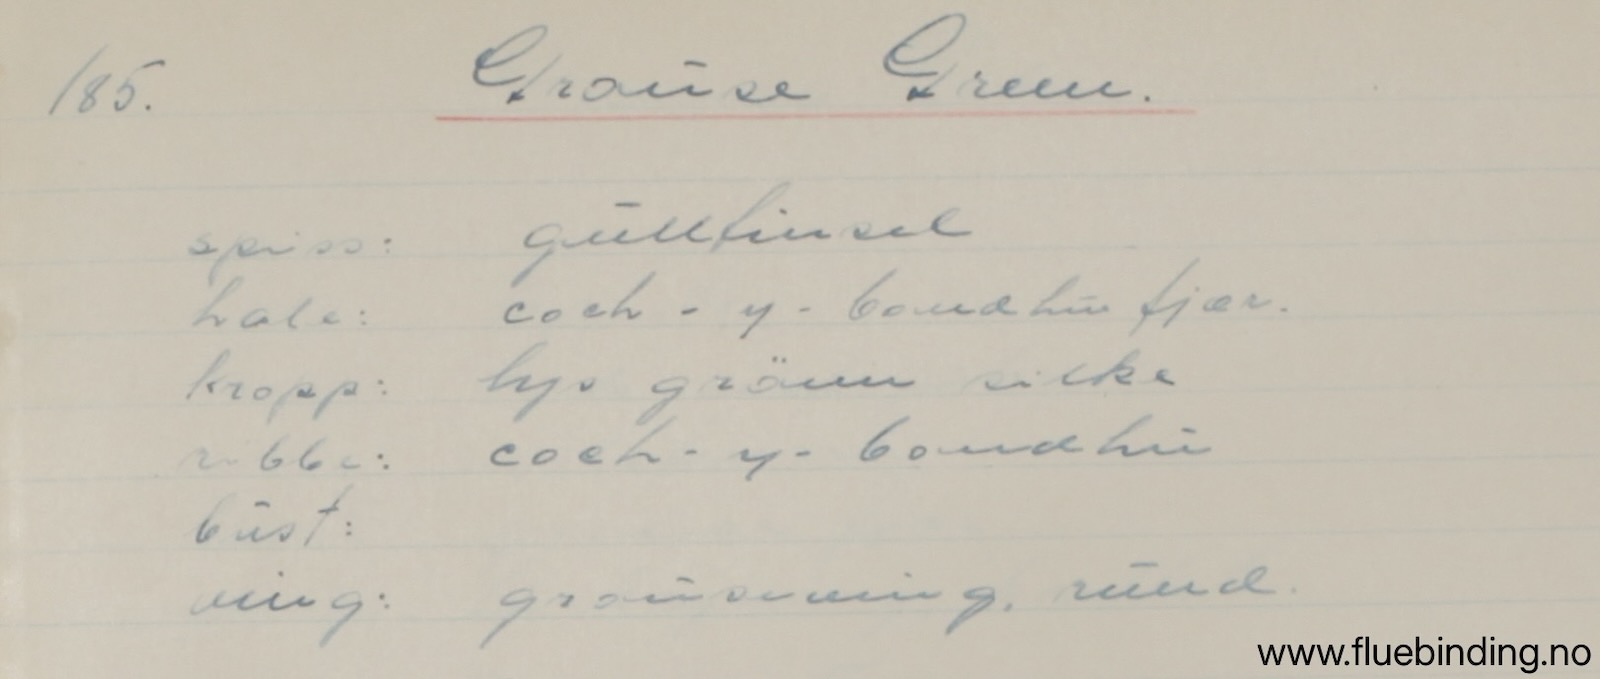 185. Grouse Green.
spiss: gulltinsel
hale: coch-y-bondhu fjær.
kropp: lys grönn silke
ribbe: coch-y-bondhu
bust:
ving: grouseving, rund.
www.fluebinding.no